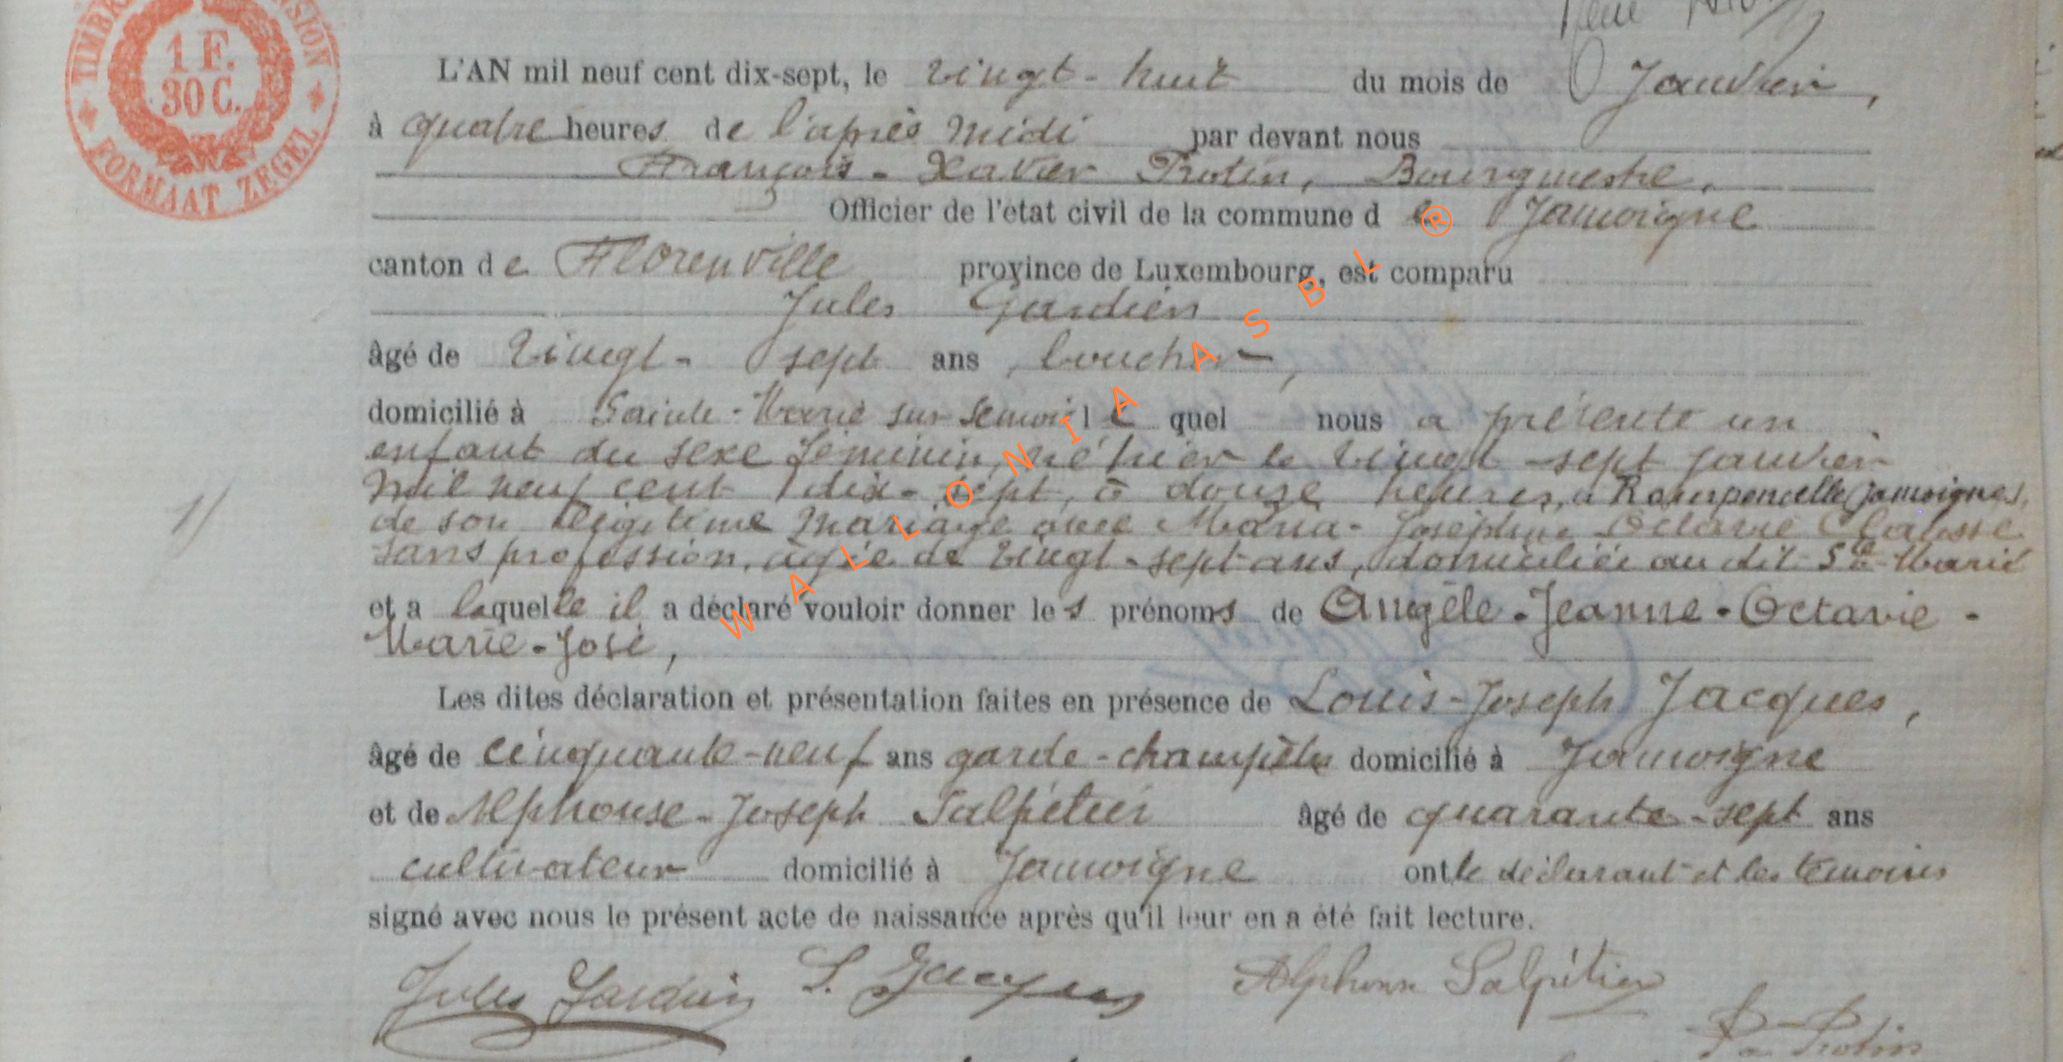 TIMBRE DIMENSION
1 F.
30 C.
FORMAAT ZEGEL
L'AN mil neuf cent dix-sept, le vingt-huit du mois de Janvier,
à quatre heures de l'après midi par devant nous
François-Xavier Protin, Bourgmestre,
Officier de l'état civil de la commune de Jamoigne
canton de Florenville province de Luxembourg, est comparu
Jules Gardien
âgé de vingt-sept ans, boucher,
domicilié à Sainte-Marie sur Semois lequel nous a présenté un
enfant du sexe féminin, né hier le vingt-sept janvier
mil neuf cent dix-sept, à douze heures, à Romponcelle (Jamoigne),
de son légitime mariage avec Maria-Joséphine Octavie Clausse
sans profession, âgée de vingt-sept ans, domiciliée au dit Ste-Marie
1/
et a laquelle il a déclaré vouloir donner les prénoms de Angèle-Jeanne-Octavie-
Marie-José,
Les dites déclaration et présentation faites en présence de Louis-Joseph Jacques,
âgé de cinquante-neuf ans garde-champêtre domicilié à Jamoigne
et de Alphonse-Joseph Salpétier âgé de quarante-sept ans
cultivateur domicilié à Jamoigne ont le déclarant et les témoins
signé avec nous le présent acte de naissance après qu'il leur en a été fait lecture.
Jules Gardien L. Jacques Alphonse Salpétier
Protin
WALLONIA ASBL ®